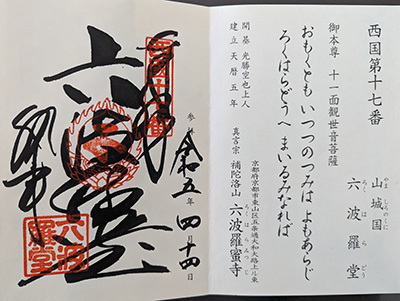 西国第十七番
山城国 六波羅堂
やましろのくに ろくはらどう
御本尊 十一面観世音菩薩
おもくとも いつつのつみは よもあらじ
ろくはらどうへ まいるみなれば
開基 光勝空也上人
建立 天暦五年
京都府京都市東山区五条通大和大路上ル東
真言宗 補陀洛山 六波羅蜜寺
ろくはらみつじ
西国十七番
奉拝
六波羅堂
令和五年 四月十四日
六波羅堂